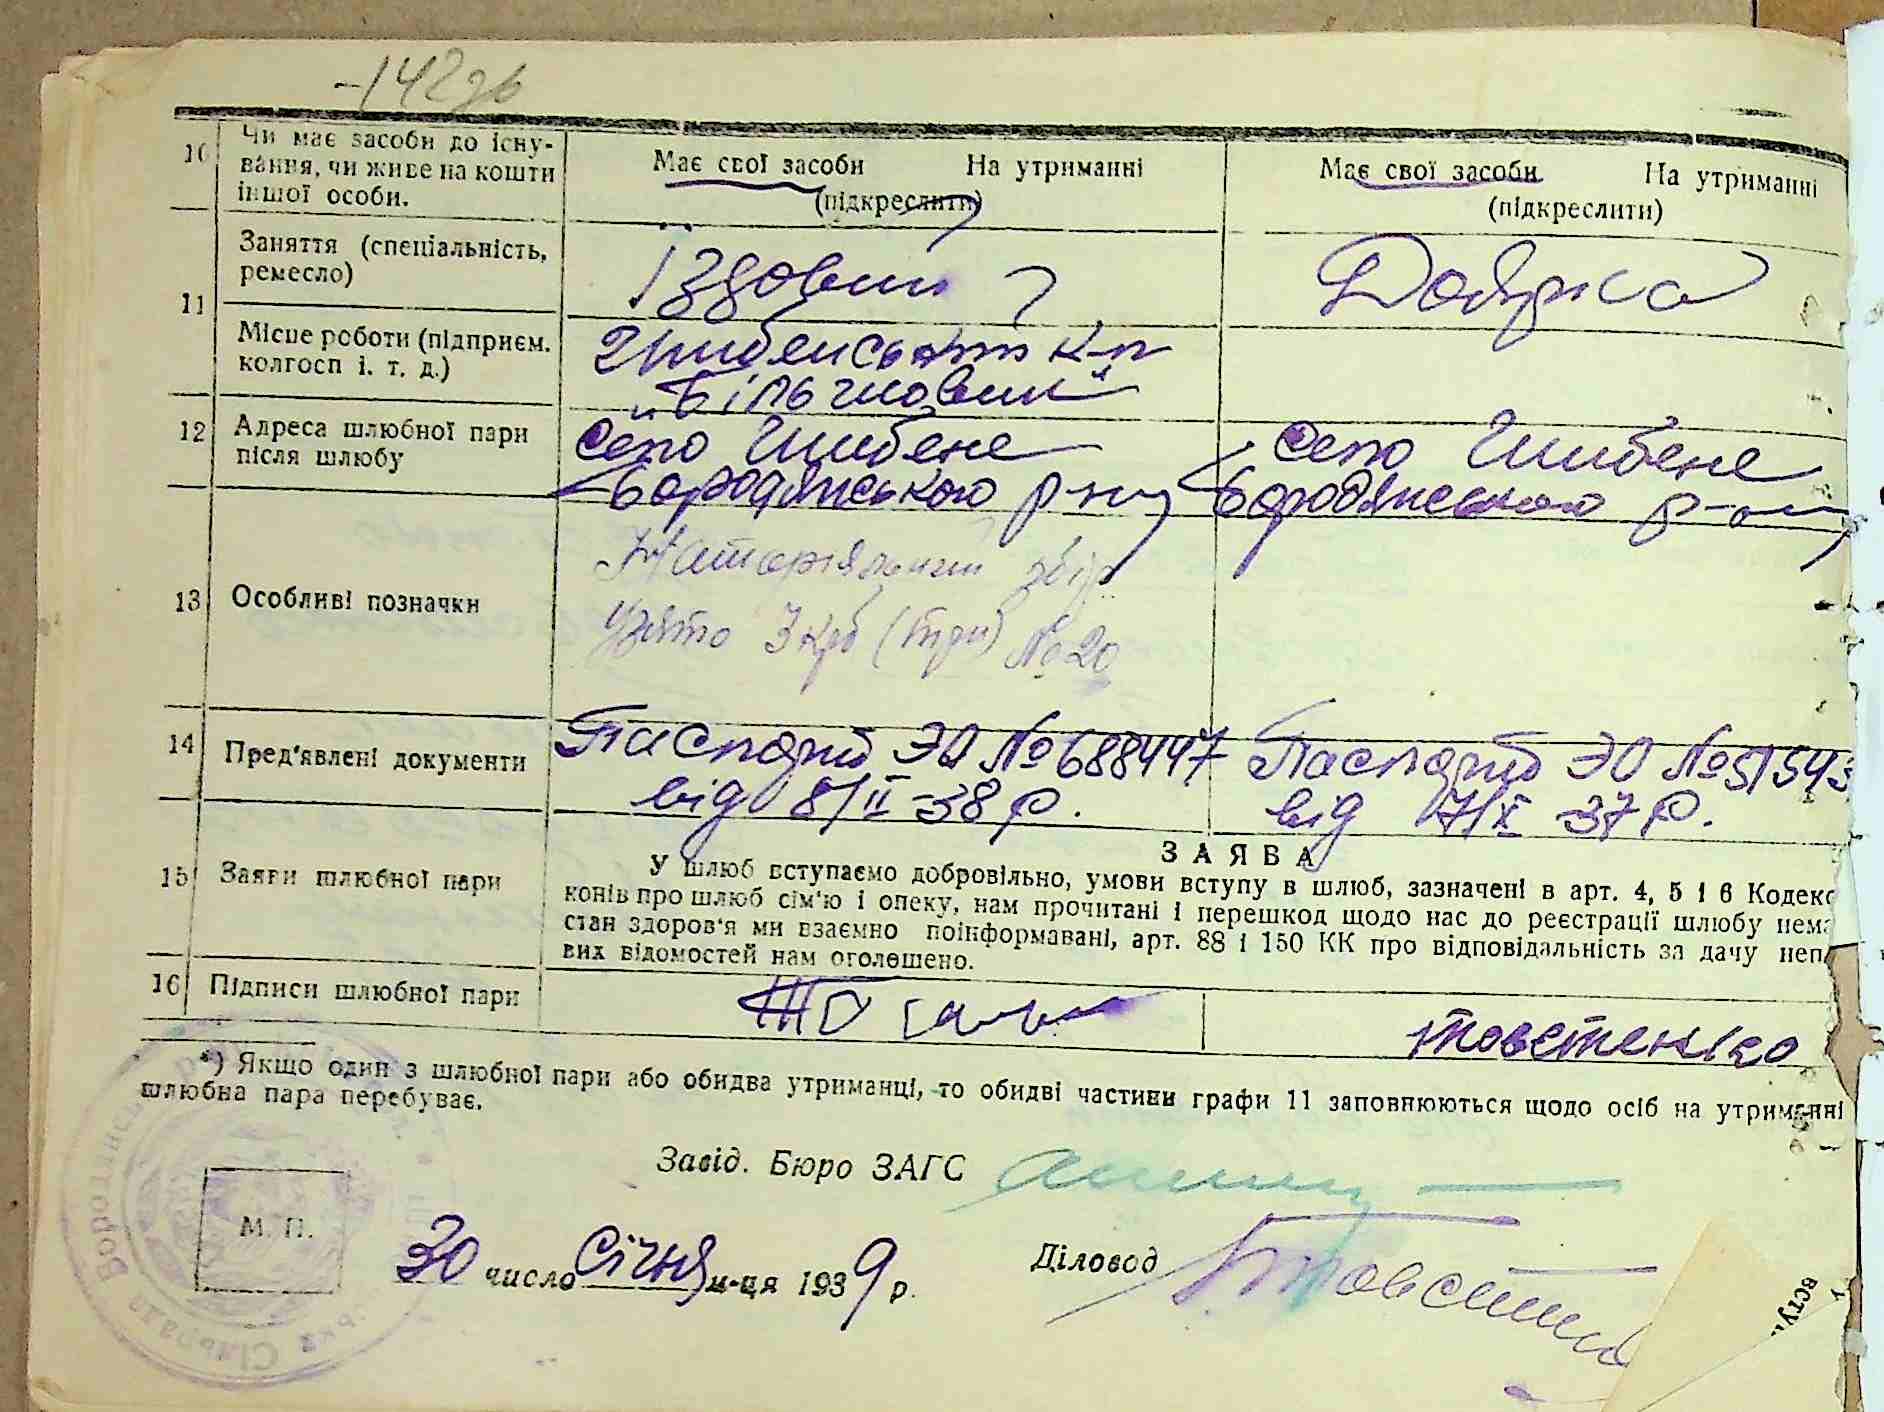 -142зв
10 Чи має засоби до існу-
вання, чи живе на кошти
іншої особи.
Має свої засоби На утриманні
(підкреслити)
Має свої засоби На утриманні
(підкреслити)
11 Заняття (спеціальність,
ремесло)
їздовий
Доярка
Місце роботи (підприєм.
колгосп і. т. д.)
к-п
„Більшовик"
12 Адреса шлюбної пари
після шлюбу
село Шибене
Бородянського р-ну
село Шибене
Бородянського р-ну
13 Особливі позначки
Натаріяльний збір
узято 3 крб (три) № 20
14 Пред'явлені документи
Паспорт ЭЮ № 688447
від 8/II-38 р.
Паспорт ЭЮ № 51543
від 17/X-37 р.
15 Заяви шлюбної пари
ЗАЯВА
У шлюб вступаємо добровільно, умови вступу в шлюб, зазначені в арт. 4, 5 і 6 Кодекс
конів про шлюб сім'ю і опеку, нам прочитані і перешкод щодо нас до реєстрації шлюбу нема
стан здоров'я ми взаємно поінформавані, арт. 88 і 150 КК про відповідальність за дачу неп
вих відомостей нам оголошено.
16 Підписи шлюбної пари
Товстенко
*) Якщо один з шлюбної пари або обидва утриманці, то обидві частини графи 11 заповнюються щодо осіб на утриманні
шлюбна пара перебуває.
Завід. Бюро ЗАГС
М. П.
30 число Січня м-ця 1939 р.
Діловод
вступ